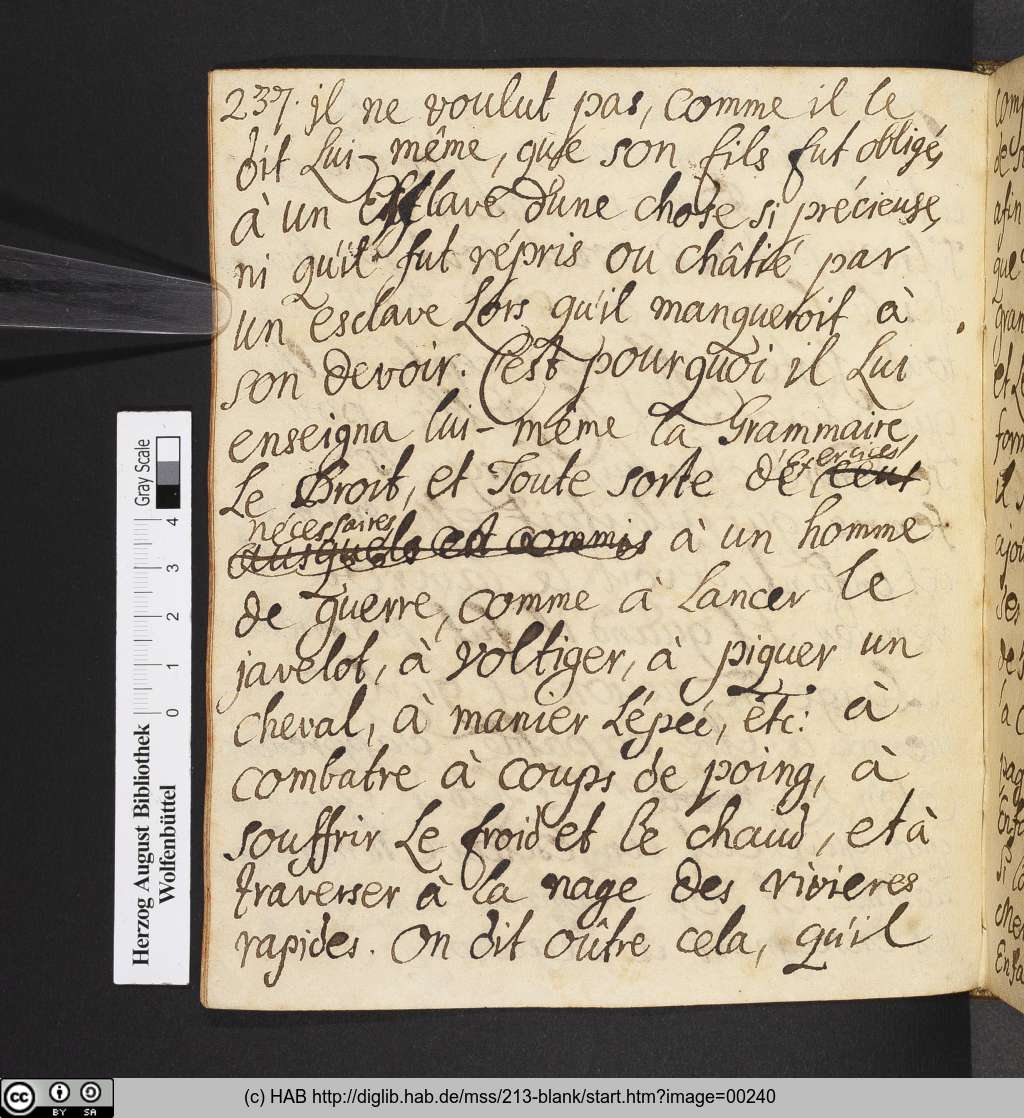 237. jl ne voulut pas, comme il le
dit Lui-même, que son fils fut obligé,
à un Esclave d'une chose si précieuse,
ni qu'il fut répris ou châtié par
un esclave Lors qu'il manqueroit à
son devoir. C'est pourquoi il Lui
enseigna lui-même la Grammaire,
Le Droit, et Toute sorte d'Exercices
nécessaires à un homme
de guerre, comme à Lancer le
javelot, à voltiger, à piquer un
cheval, à manier L'épeé, etc: à
combatre à coups de poing, à
souffrir Le froid et le chaud, et à
traverser à la nage des rivieres
rapides. On dit oûtre cela, qu'il
Gray Scale
4
3
2
1
0
Herzog August Bibliothek
Wolfenbüttel
(c) HAB http://diglib.hab.de/mss/213-blank/start.htm?image=00240
cc BY SA